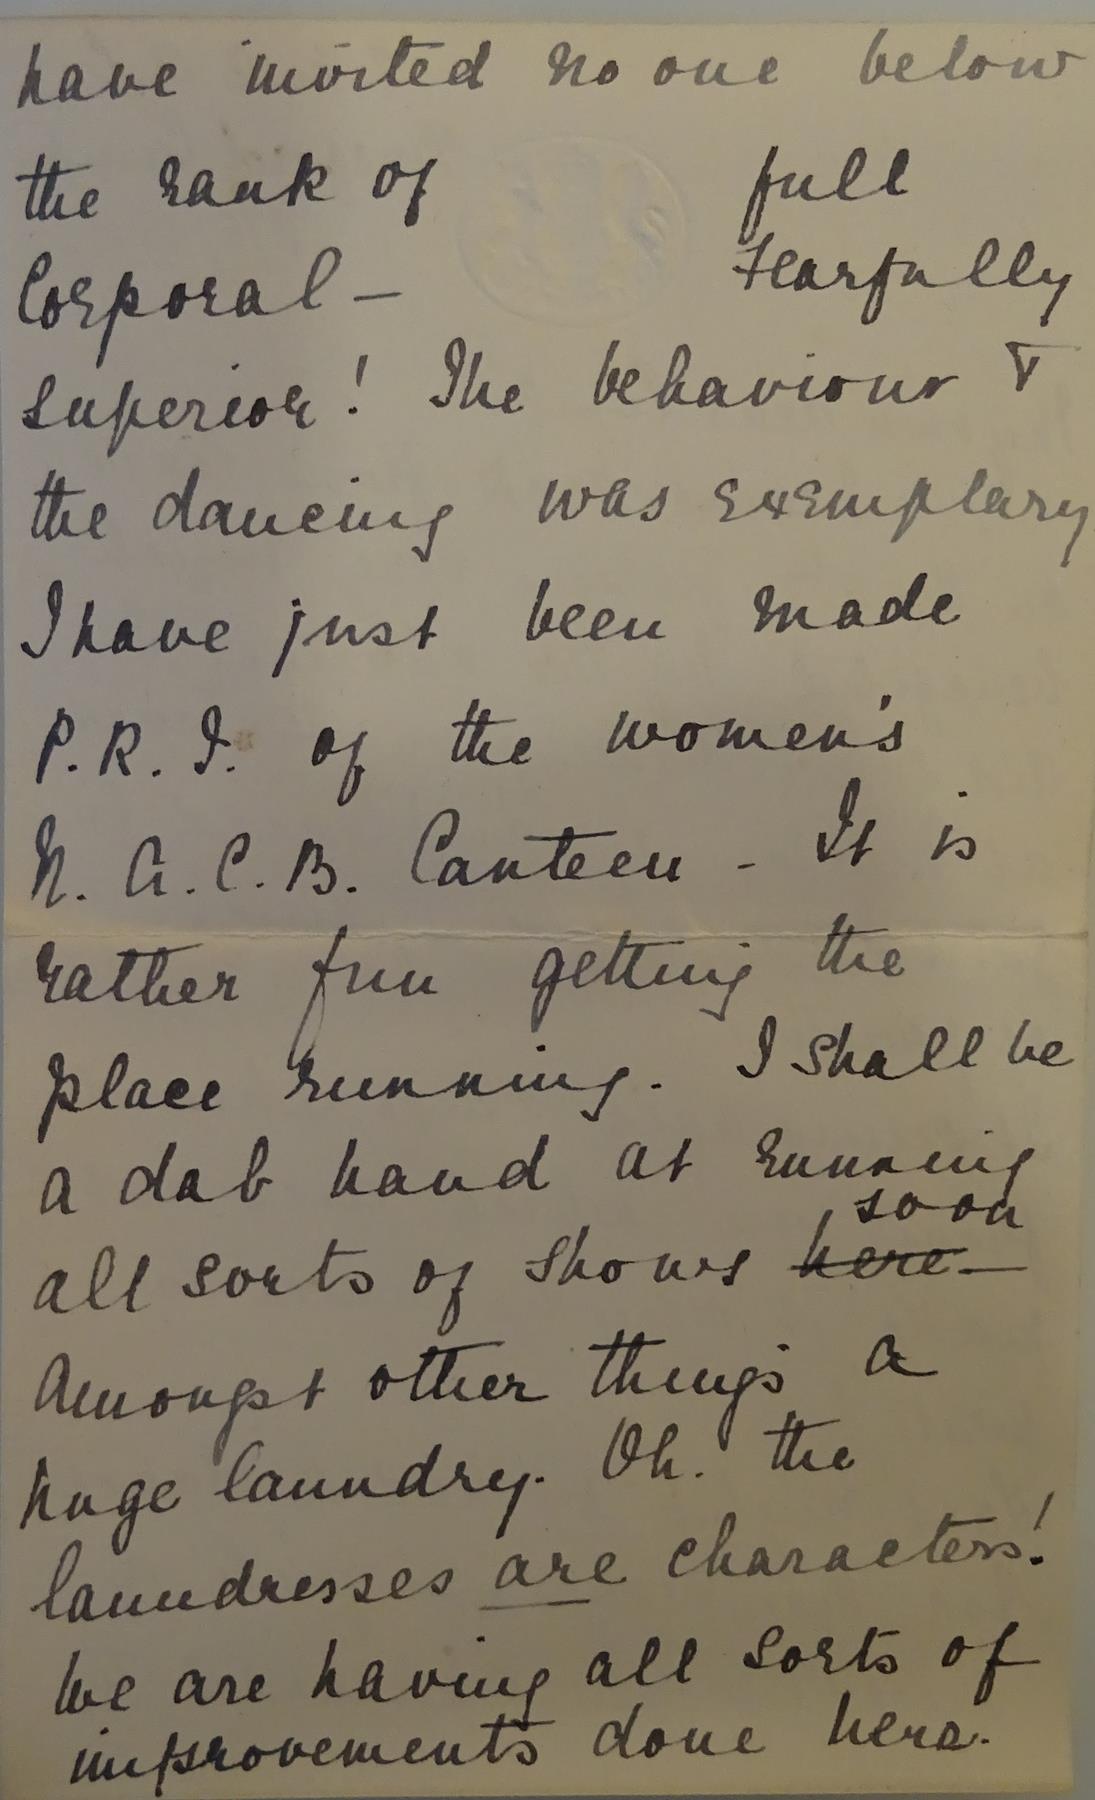 have invited no one below
the rank of full
Corporal — fearfully
superior! The behaviour &
the dancing was exemplary
I have just been made
P.R.I. of the women's
N.A.C.B. Canteen - It is
rather fun getting the
place running. I shall be
a dab hand at running
soon
all sorts of shows here —
Amongst other things a
huge laundry. Oh! the
laundresses are characters!
We are having all sorts of
improvements done here.